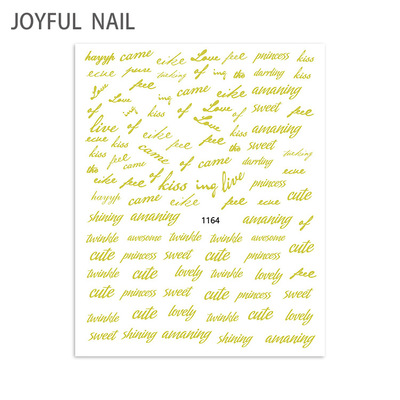 JOYFUL NAIL
happyh came eike Love pee princess kiss
ecue pure of ing the darrling kiss
Love pee came eike amaning
of Love ing kiss of Love of sweet
live of eike pee kiss amaning
ecue kiss came of the sweet
kiss pee of came darrling
the came of ecue
eike pee kiss ing live princess
happyh came eike pee ecue cute
shining amaning 1164 amaning of
twinkle awesome twinkle twinkle awesome
cute princess sweet cute princess kiss
twinkle cute lovely twinkle lovely pee
cute princess sweet cute princess sweet
twinkle cute lovely twinkle cute lovely
sweet shining amaning shining amaning